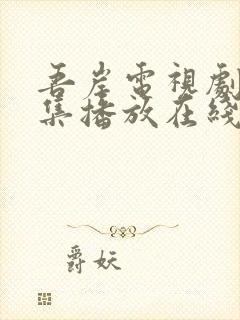 吾岸電視劇
集播放在綫
爵妖